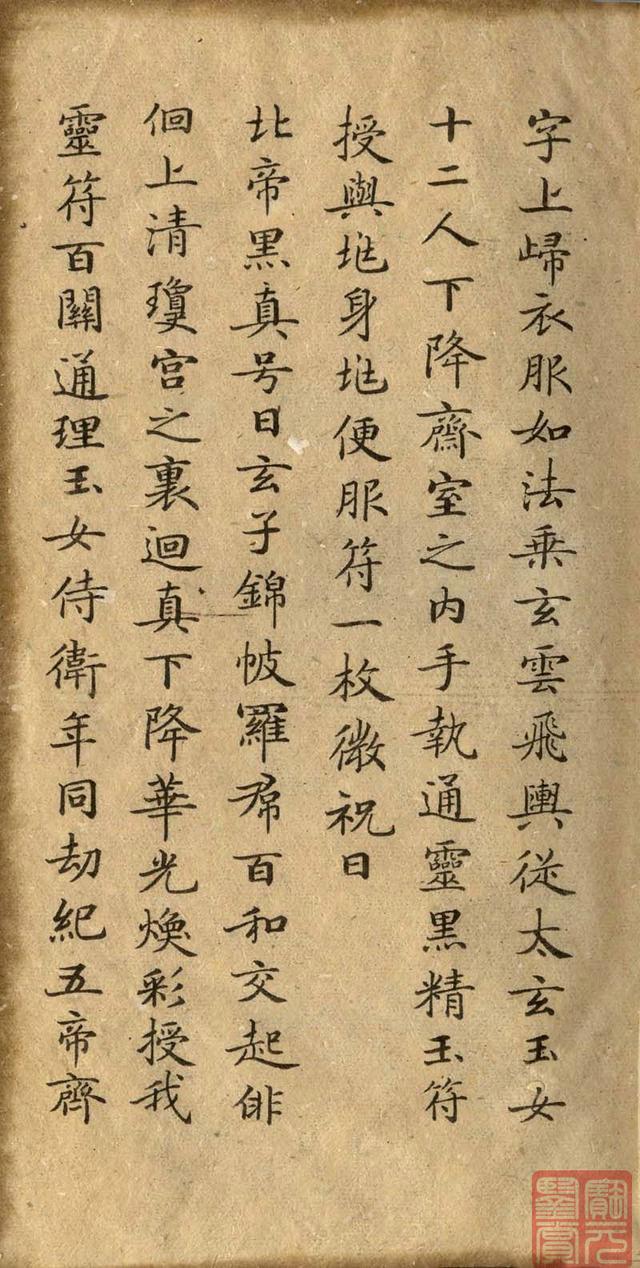 字上歸衣服如法乘玄雲飛輿從太玄玉女
十二人下降齋室之内手執通靈黑精玉符
授與垗身垗便服符一枚微祝曰
北帝黑真号曰玄子錦帔羅帬百和交起俳
佪上清瓊宮之裏迴真下降華光煥彩授我
靈符百關通理玉女侍衛年同劫紀五帝齊